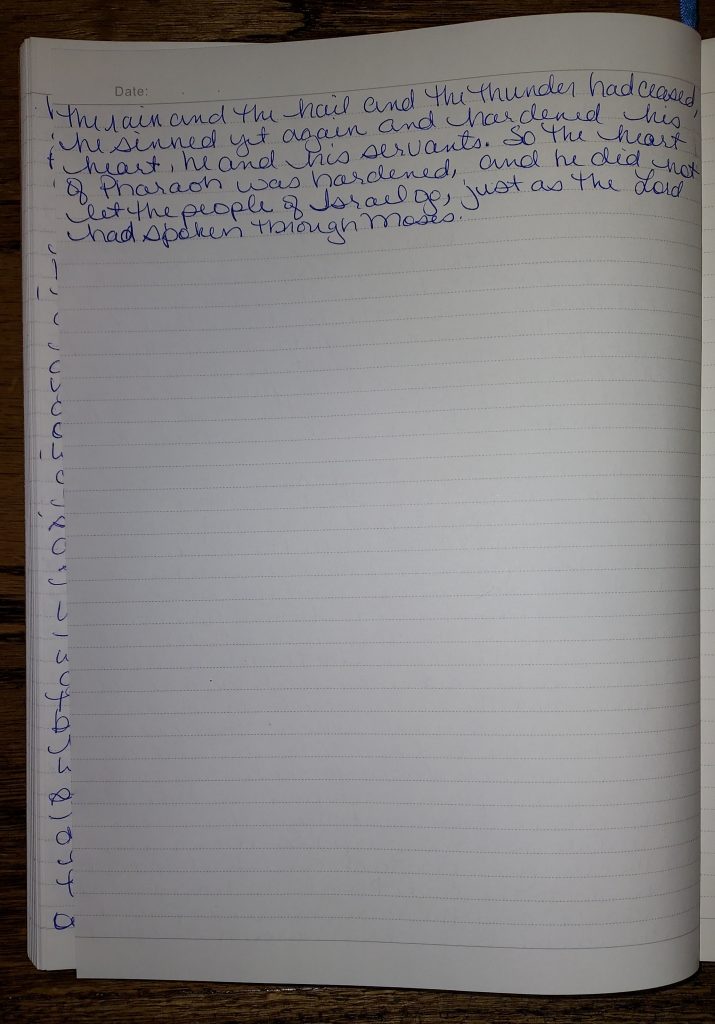 Date:
the rain and the hail and the thunder had ceased,
he sinned yet again and hardened his
heart, he and his servants. So the heart
of Pharaoh was hardened, and he did not
let the people of Israel go, just as the Lord
had spoken through Moses.